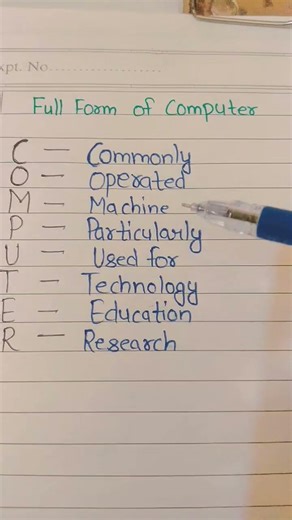 xpt. No....................
Full Form of Computer
C — Commonly
O — Operated
M — Machine
P — Particularly
U — Used for
T — Technology
E — Education
R — Research